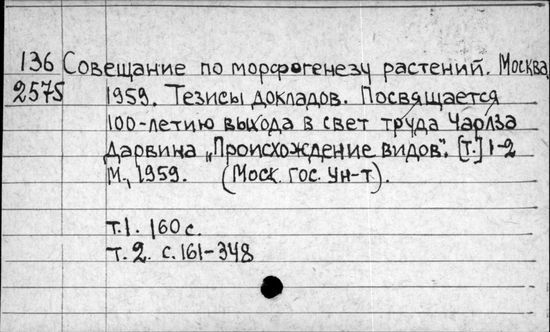 136 Совещание по морфогенезу растений. Москва,
2575 1959. Тезисы докладов. Посвящается
100-летию выхода в свет труда Чарлза
Дарвина „Происхождение видов". [т.] 1-2
М., 1959. (Моск. гос. ун-т).
т.1. 160 с.
т. 2. с. 161-348